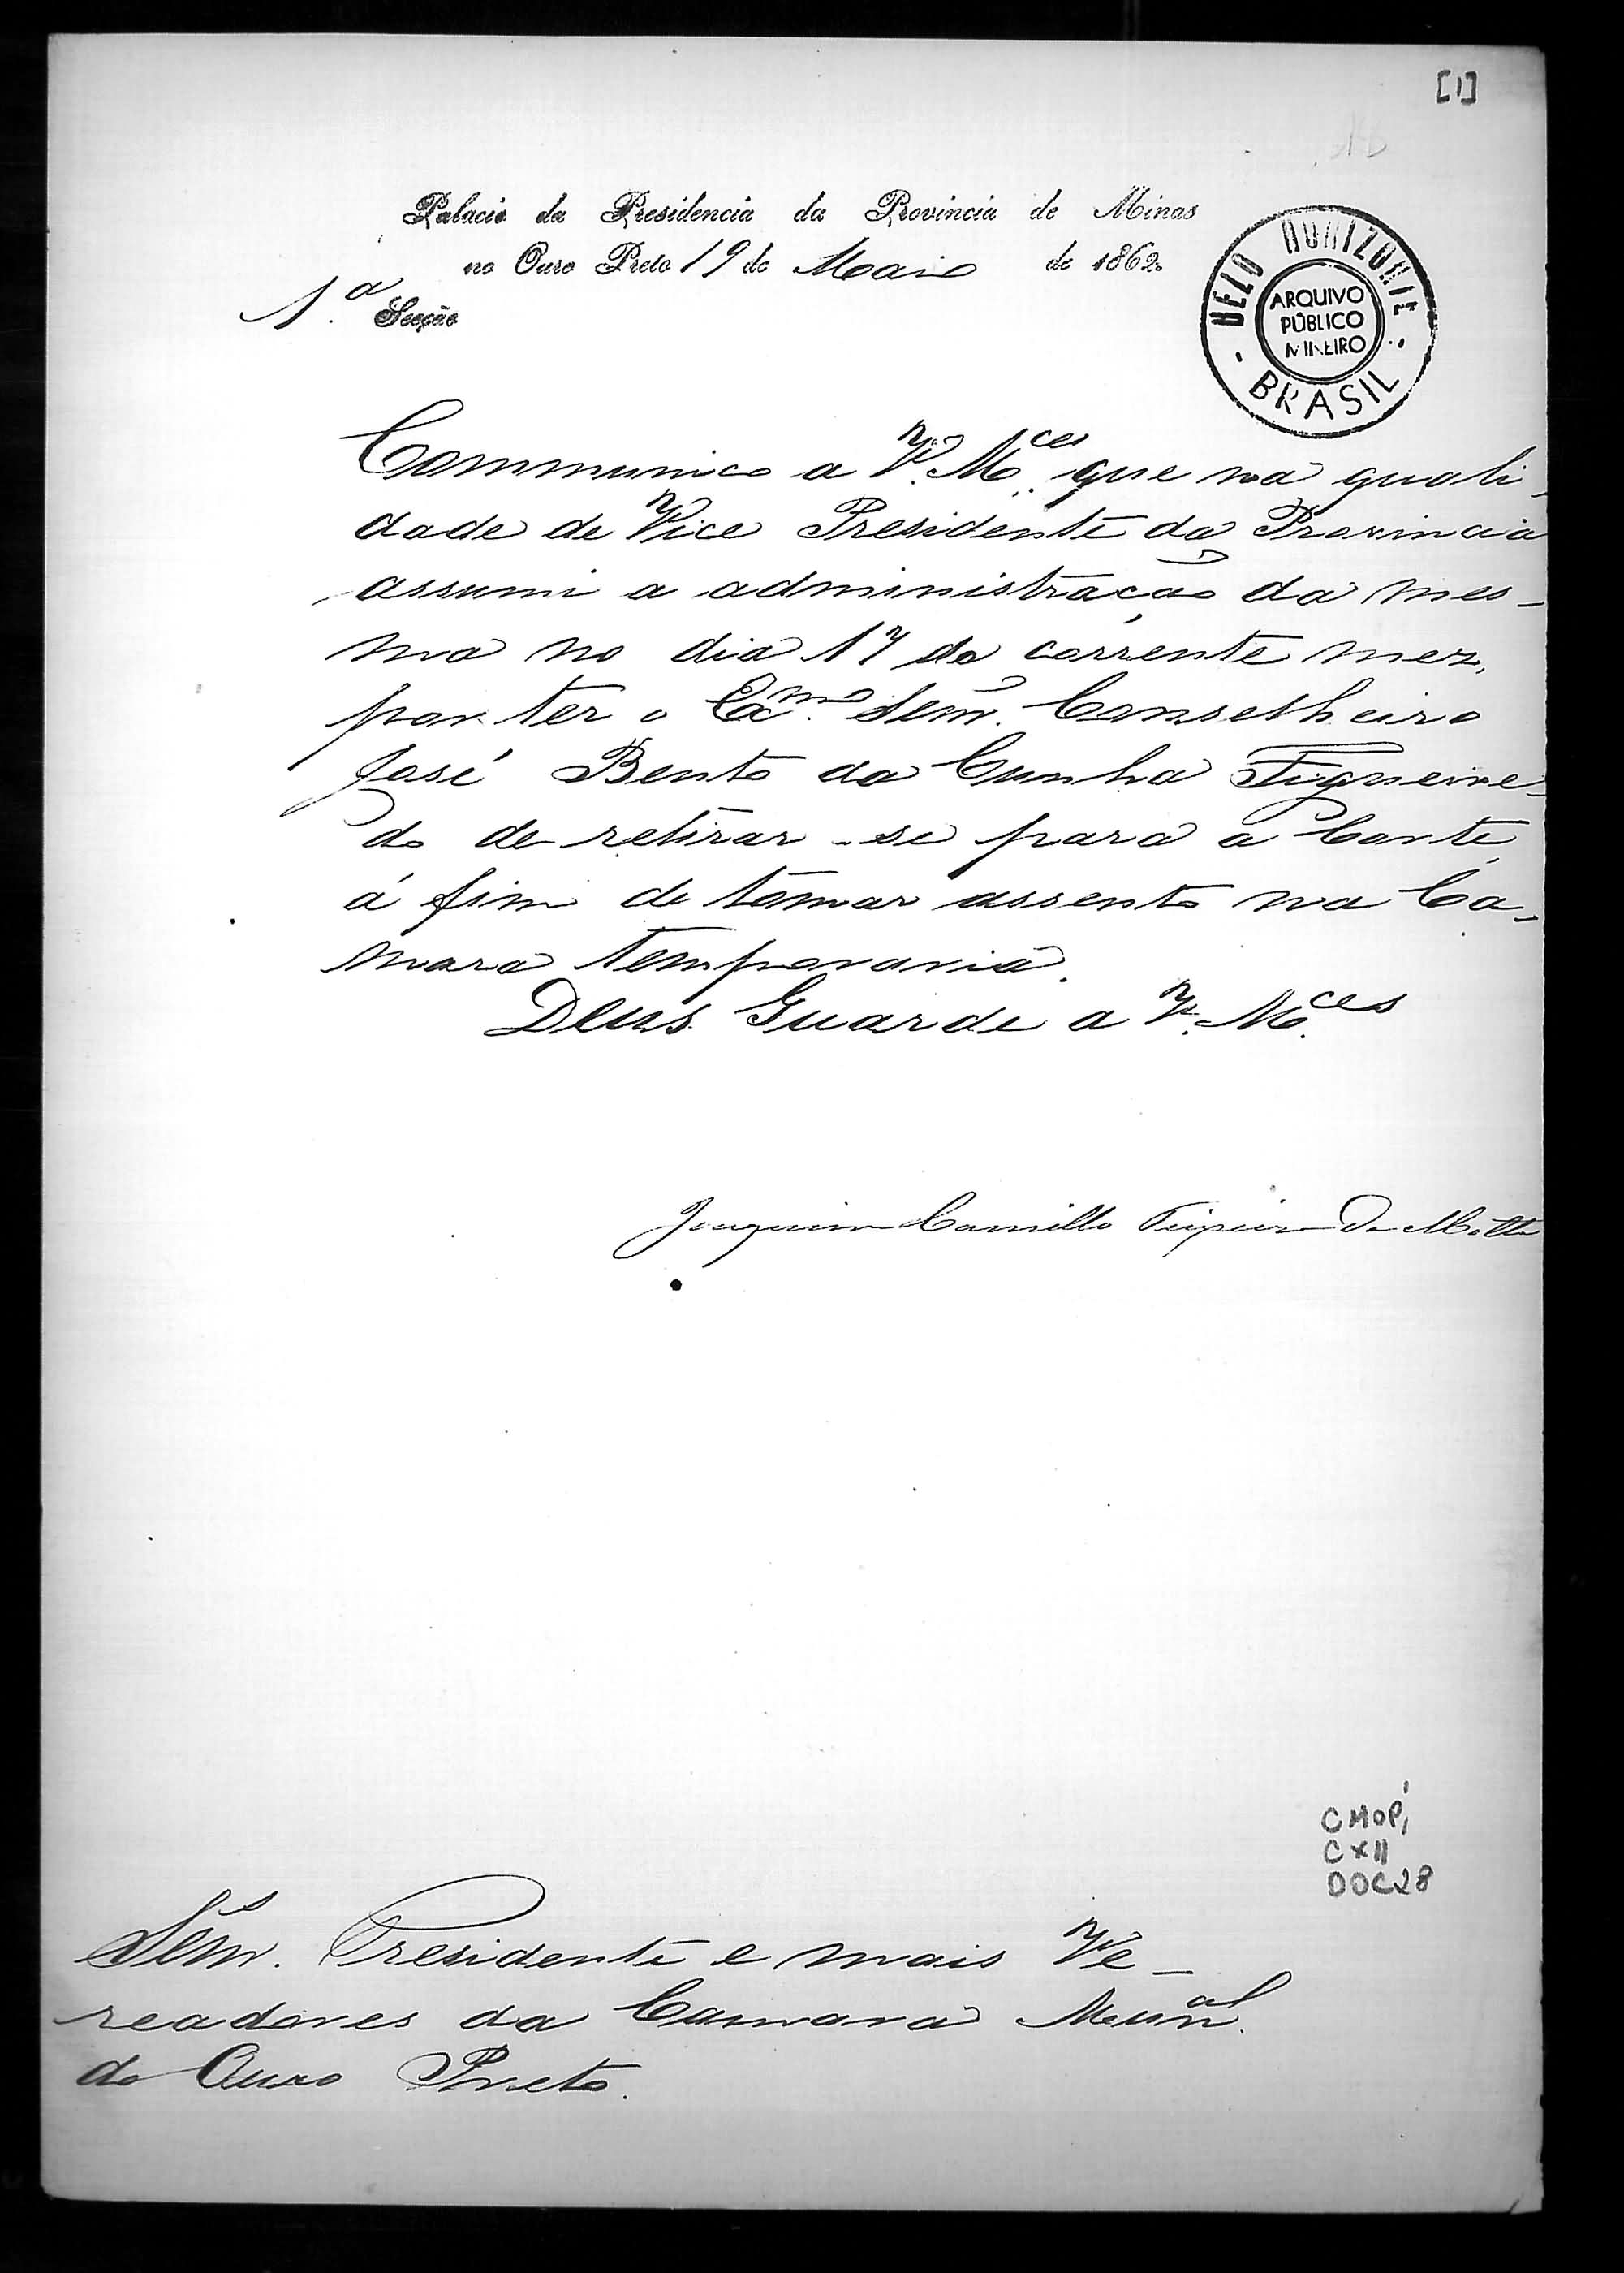 [1]
Palacio da Presidencia da Provincia de Minas
no Ouro Preto 19 de Maio de 1862.
1.ª Secção
BELO HORIZONTE
ARQUIVO
PÚBLICO
MINEIRO
BRASIL
Communico a V. M.ces que na quali-
dade de Vice Presidente da Provincia
assumi a administração da mes-
ma no dia 17 do corrente mez,
por ter o Exmo. Senr. Conselheiro
José Bento da Cunha Figueire-
do de retirar-se para a Corte,
á fim de tomar assento na Ca-
mara temporaria.
Deus Guarde a V. M.ces
Joaquim Camillo Teixeira da Motta
CMOP,
CXII
DOC28
Senrs. Presidente e mais Ve-
readores da Camara Munal.
do Ouro Preto.